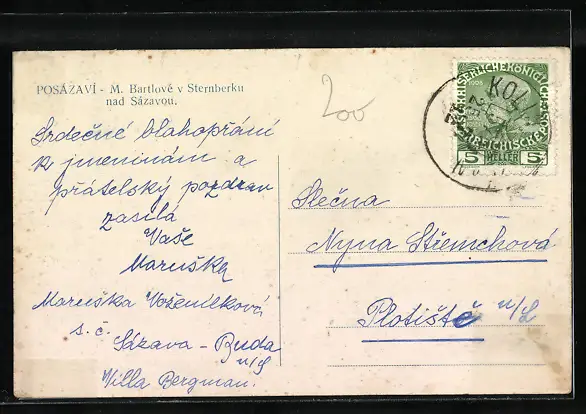 POSÁZAVÍ - M. Bartlově v Sternberku
nad Sázavou.
200
Srdečné blahopřání
k jmeninám a
přátelský pozdrav
zasílá
Vaše
Maruška
Maruška Voženílková
s. č.
Sázava - Buda
n/S
Villa Bergman.
KAISERLICHE KÖNIGLICHE
ÖSTERREICHISCHE POST
1908
5 HELLER 5
KOL
Slečna
Nyna Střemchová
Plotiště n/L